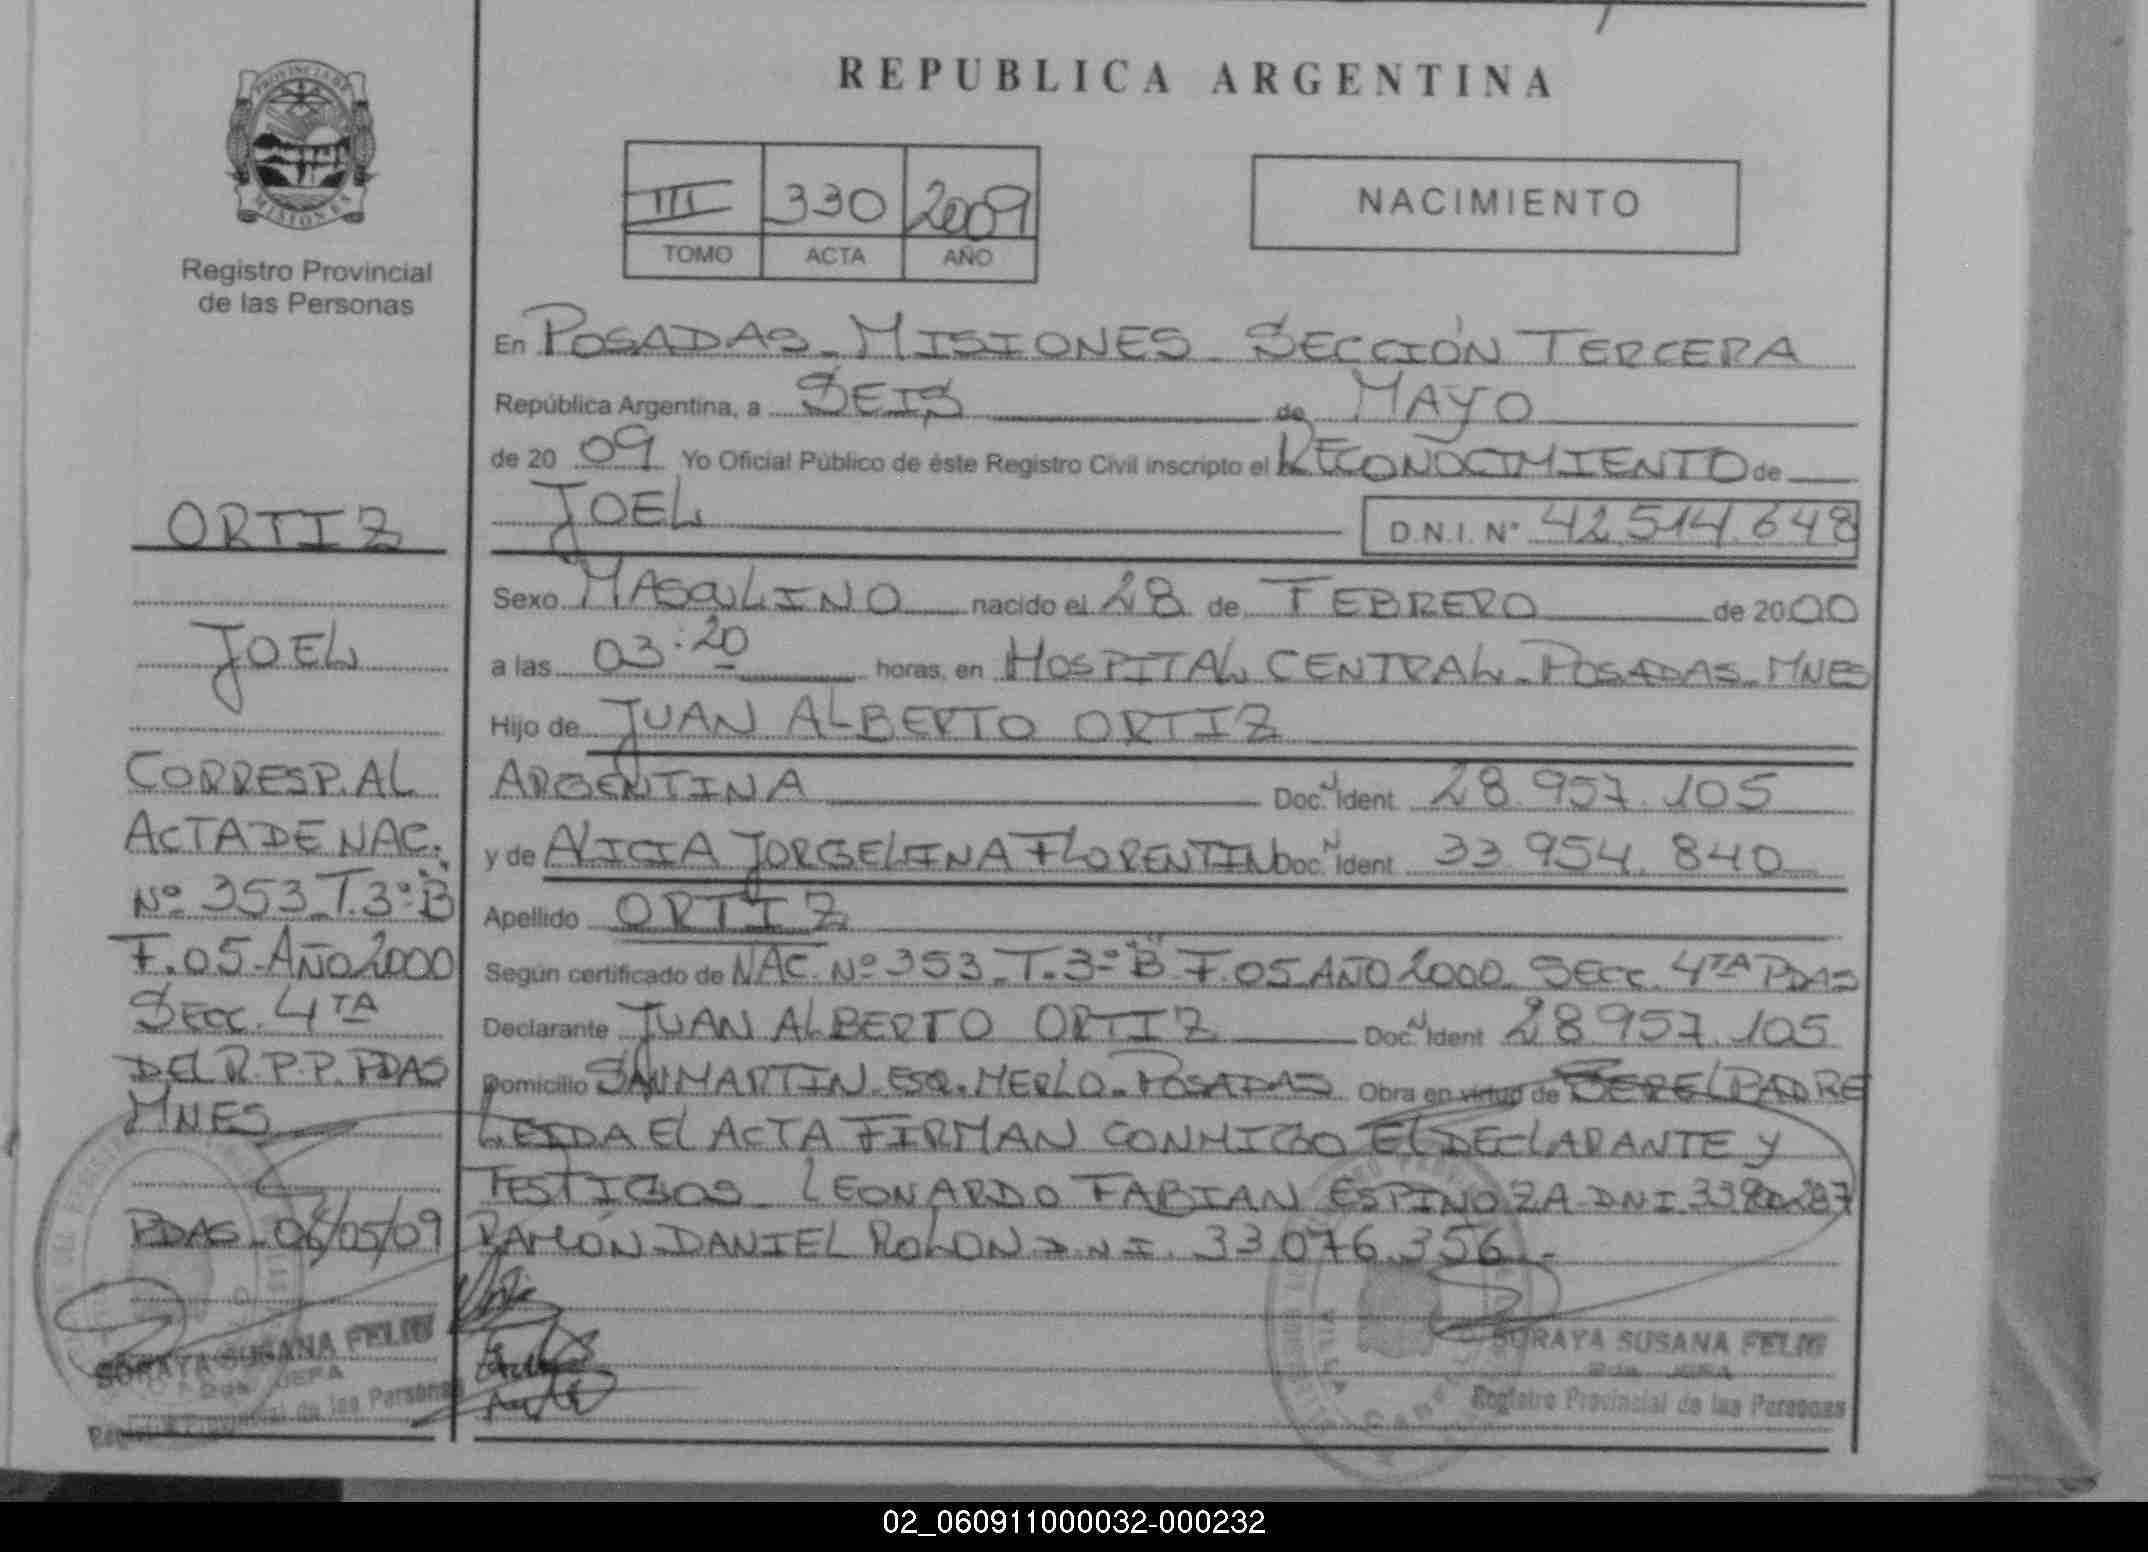 PROVINCIA DE
MISIONES
Registro Provincial
de las Personas
ORTIZ
JOEL
CORRESP. AL
ACTA DE NAC.
Nº 353_T.3º "B"
F.05-AÑO 2000
SECC. 4TA
DEL R.P.P. PDAS
MNES
PDAS_06/05/09
SORAYA SUSANA FELIU
JEFA
Registro Provincial de las Personas
REPUBLICA ARGENTINA
III 330 2009
TOMO ACTA AÑO
NACIMIENTO
En POSADAS_MISIONES_SECCIÓN TERCERA
República Argentina, a SEIS de MAYO
de 20 09 Yo Oficial Público de éste Registro Civil inscripto el RECONOCIMIENTO de
JOEL D.N.I. Nº 42.514.648
Sexo MASCULINO nacido el 28 de FEBRERO de 2000
a las 03:20 horas, en HOSPITAL CENTRAL_POSADAS_MNES
Hijo de JUAN ALBERTO ORTIZ
ARGENTINA Doc. N Ident 28.957.105
y de ALICIA JORGELINA FLORENTIN Doc. N Ident 33.954.840
Apellido ORTIZ
Según certificado de NAC. Nº 353_T.3º "B" F.05_AÑO 2000_SECC. 4TA PDAS
Declarante JUAN ALBERTO ORTIZ Doc. N Ident 28.957.105
Domicilio SAN MARTIN ESQ. MERLO_POSADAS Obra en virtud de SER EL PADRE
LEIDA EL ACTA FIRMAN CONMIGO EL DECLARANTE Y
TESTIGOS_LEONARDO FABIAN ESPINOZA-DNI
RAMÓN DANIEL ROLON D.N.I. 33.076.356_
SORAYA SUSANA FELIU
JEFA
Registro Provincial de las Personas
02_060911000032-000232